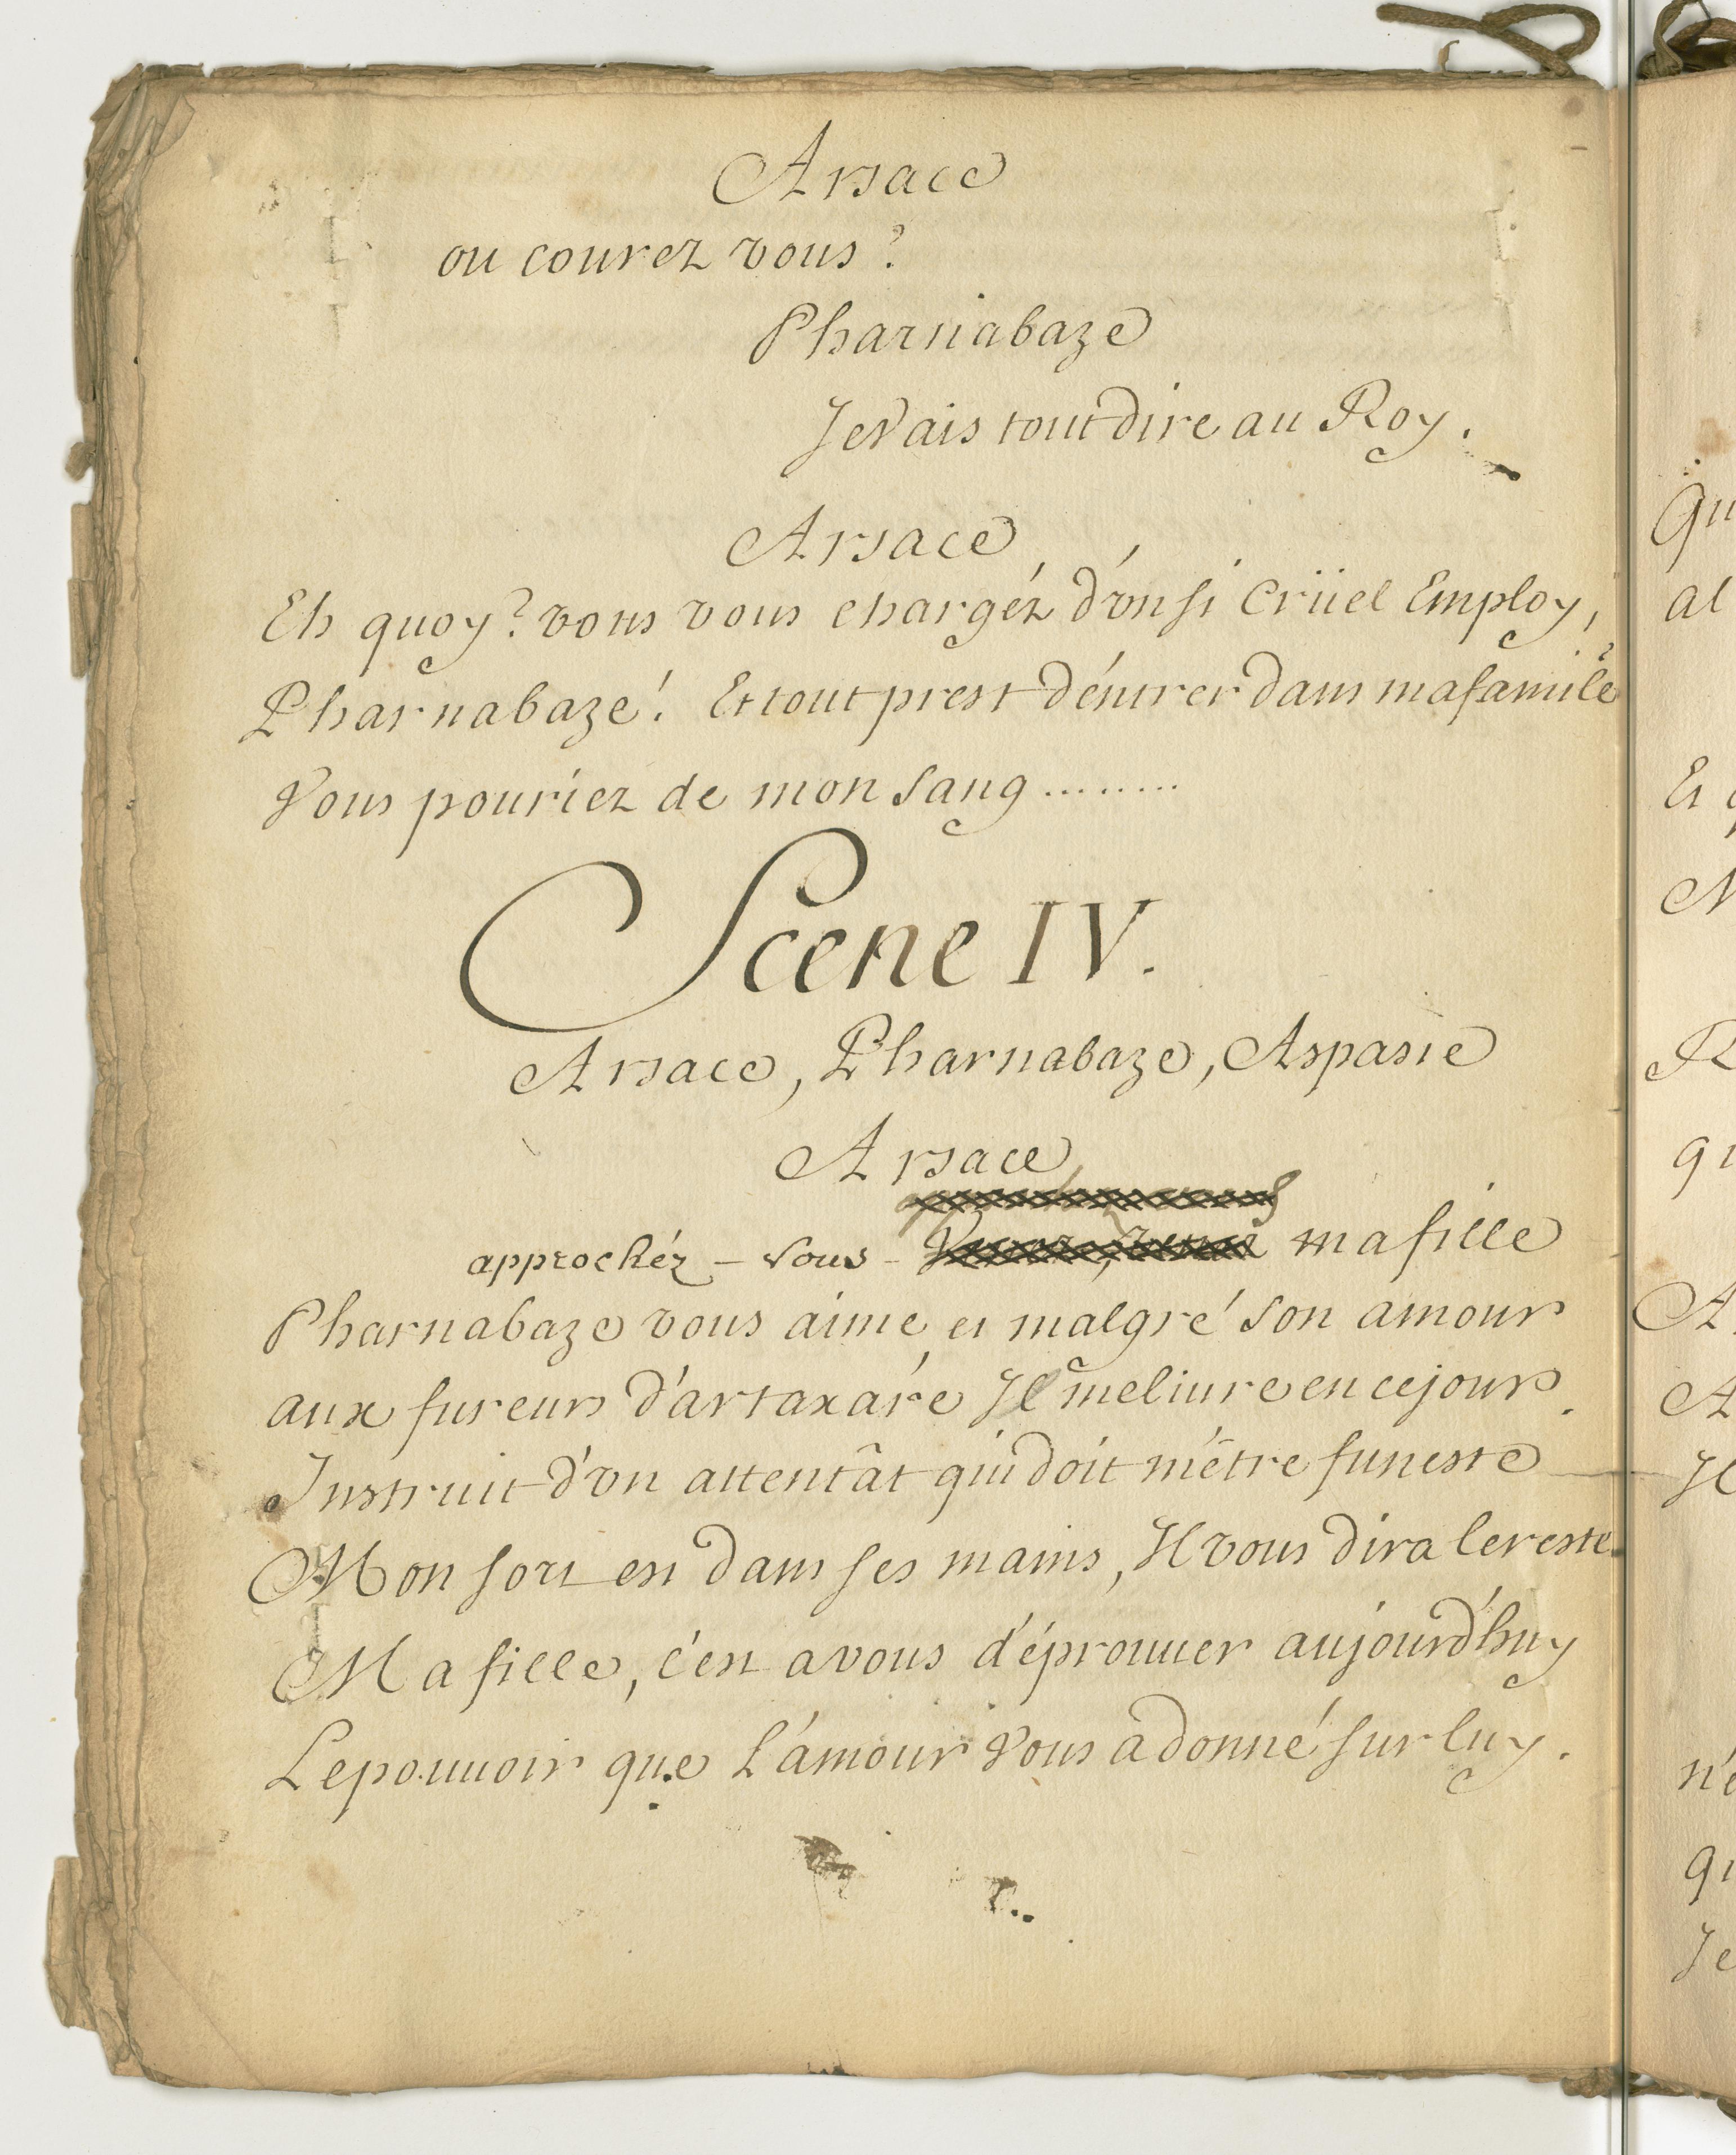 Arsace
ou courez vous?
Pharnabaze
Je Vais tout dire au Roy.
Arsace
Eh quoy? vous vous chargéz d'vn si Crüel Employ,
Pharnabaze! Et tout prest d'éntrer dans ma famile
Vous pouriez de mon sang ........
Scene IV.
Arsace, Pharnabaze, Aspasie
Arsace
approchéz - vous - ma fille
Pharnabaze vous aime, et malgré son amour
aux fureurs d'artaxare Il me liure en ce jour.
Instruit d'vn attentât qui doit m'être funeste
Mon sort est dans ses mains, Il vous dira le reste.
Ma fille, c'est a vous d'éprouuer aujourd'huy
Le pouuoir que L'ámour Vous a donné sur luy.
Qu
al
Et
M
R
qu
A
A
Il
n'é
qu
Je